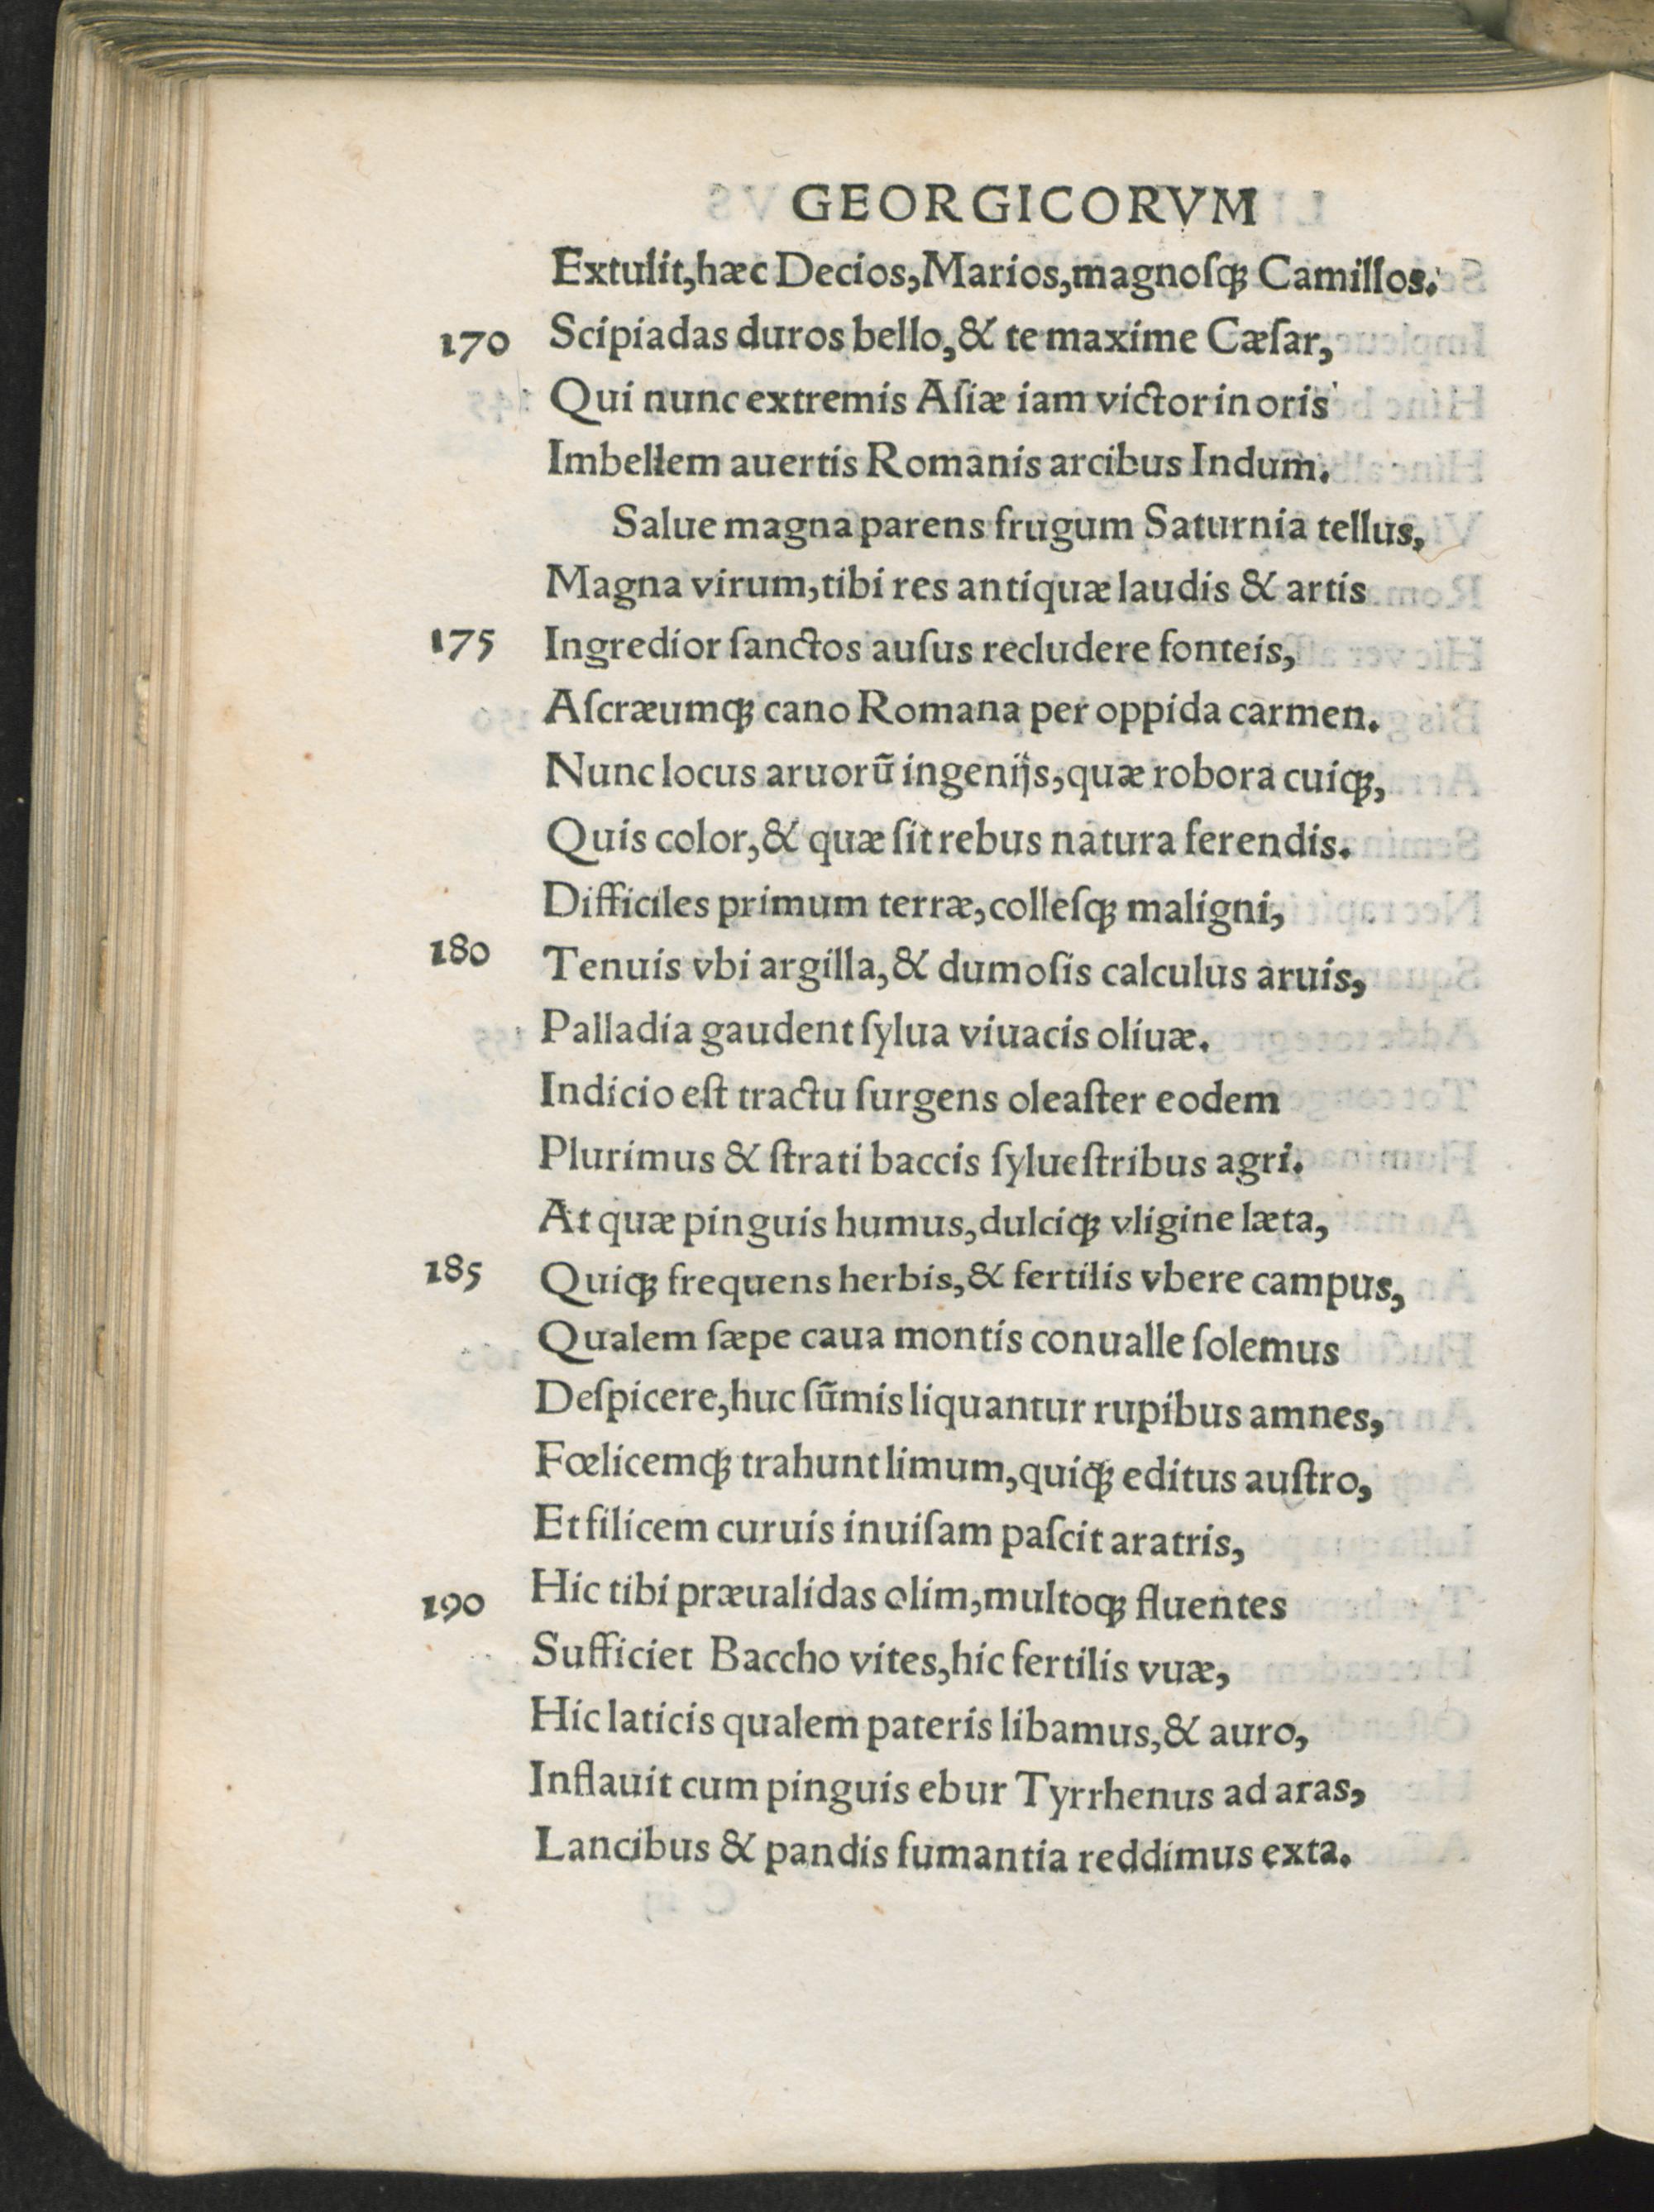 GEORGICORVM
Extulit, hæc Decios, Marios, magnoſqꝫ Camillos.
170 Scipiadas duros bello, & te maxime Cæſar,
Qui nunc extremis Aſiæ iam victor in oris
Imbellem auertis Romanis arcibus Indum.
Salue magna parens frugum Saturnia tellus,
Magna virum, tibi res antiquæ laudis & artis
175 Ingredior ſanctos auſus recludere fonteis,
Aſcræumqꝫ cano Romana per oppida carmen.
Nunc locus aruorũ ingenijs, quæ robora cuiqꝫ,
Quis color, & quæ ſit rebus natura ferendis.
Difficiles primum terræ, colleſqꝫ maligni,
180 Tenuis vbi argilla, & dumoſis calculus aruis,
Palladia gaudent ſylua viuacis oliuæ.
Indicio eſt tractu ſurgens oleaſter eodem
Plurimus & ſtrati baccis ſylueſtribus agri.
At quæ pinguis humus, dulciqꝫ vligine læta,
185 Quiqꝫ frequens herbis, & fertilis vbere campus,
Qualem ſæpe caua montis conualle ſolemus
Deſpicere, huc ſũmis liquantur rupibus amnes,
Fœlicemqꝫ trahunt limum, quiqꝫ editus auſtro,
Et filicem curuis inuiſam paſcit aratris,
190 Hic tibi præualidas olim, multoqꝫ fluentes
Sufficiet Baccho vites, hic fertilis vuæ,
Hic laticis qualem pateris libamus, & auro,
Inflauit cum pinguis ebur Tyrrhenus ad aras,
Lancibus & pandis fumantia reddimus exta.